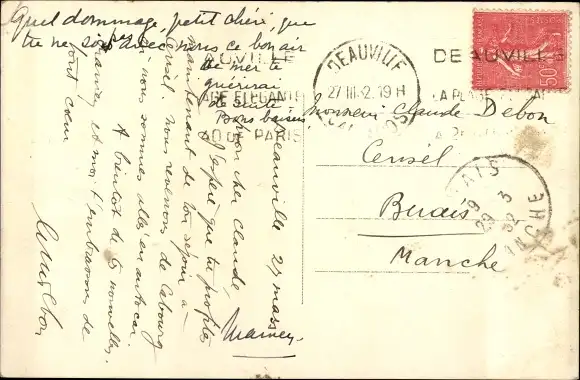 Quel dommage, petit chéri, que
tu ne sois avec nous ce bon air
de mer te
guérirai
de suite
Bons baisers
Mamey
Deauville 27 mars
mon cher Claude
J'espère que tu profites
maintenant de ton séjour à
Censél nous revenons de Cabourg
où nous sommes allés en autocar.
A bientôt de tes nouvelles.
Mamey et moi t'embrassons de
tout cœur
DEAUVILLE
27 III 32 19 H
CALVADOS
DEAUVILLE
LA PLAGE
DEAUVILLE
PLAGE ELEGANTE
DE PARIS
50
Monsieur Claude Debon
Censél
Beuais
Manche
29 3 32
MANCHE